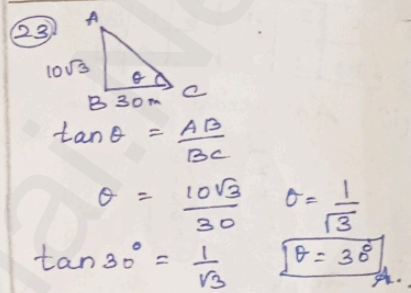 23
A
10√3
θ
B 30m C
tanθ = AB/BC
θ = 10√3/30 θ = 1/√3
tan30° = 1/√3 θ = 30°
A.